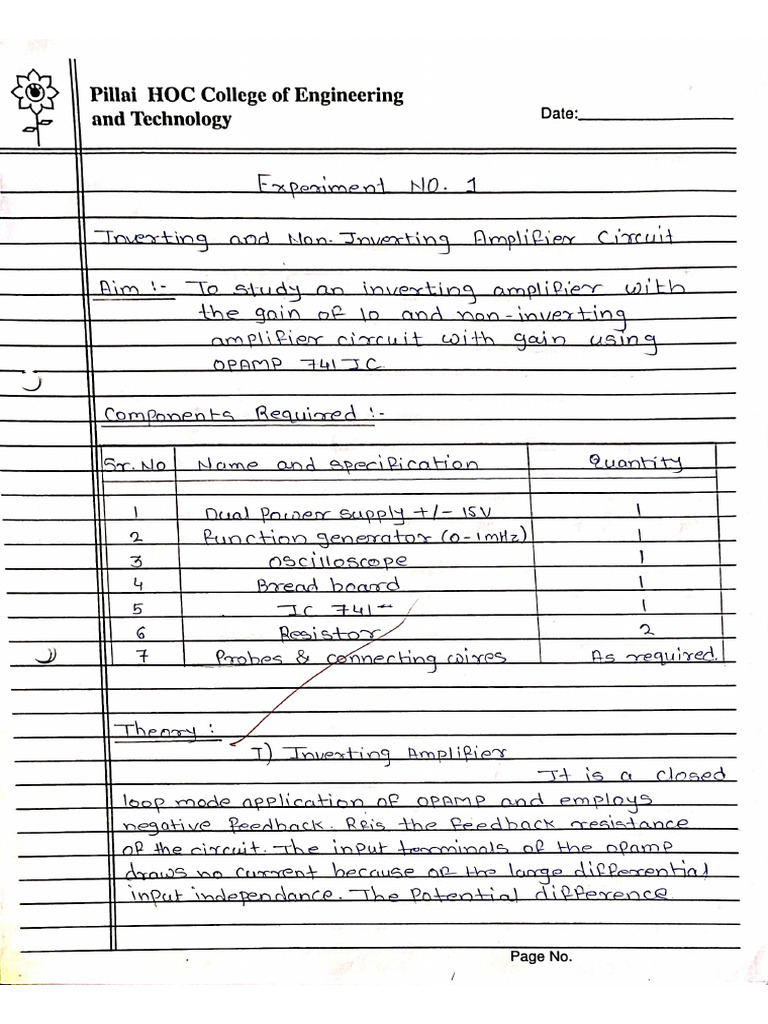 Pillai HOC College of Engineering
and Technology
Date:
Experiment NO. 1
Inverting and Non-Inverting Amplifier Circuit
Aim :- To study an inverting amplifier with
the gain of 10 and non-inverting
amplifier circuit with gain using
OPAMP 741 IC
Components Required :-
Sr. No Name and specification Quantity
1 Dual Power supply +/- 15V 1
2 Function generator (0-1mHz) 1
3 oscilloscope 1
4 Bread board 1
5 IC 741 1
6 Resistor 2
7 Probes & connecting wires As required.
Theory :
I) Inverting Amplifier
It is a closed
loop mode application of OPAMP and employs
negative feedback. Rfis the feedback resistance
of the circuit. The input terminals of the opamp
draws no current because of the large differential
input independance. The Potential difference
Page No.